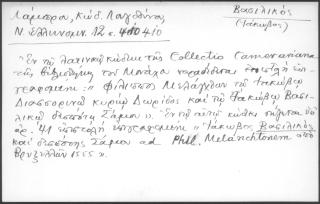 Λάμπρου, Κώδ. Λαγδούνου
Ν. Ἑλληνομν. 12 σ. 410
Βασιλικὸς
(Ἰάκωβος)
"Ἐν τῷ λατινικῷ κώδικι τῆς Collectio Camerariana
τῆς βιβλιοθήκης τοῦ Μονάχου παραδίδεται ἐπιστολὴ ἐπι-
γεγραμμένη: "Φίλιππος Μελάγχθων τῷ Ἰακώβῳ
Διασσορηνῷ κυρίῳ Δωρίδος καὶ τῷ Ἰακώβῳ Βασι-
λικῷ δεσπότῃ Σάμου". Ἐν τῷ αὐτῷ κώδικι
ἀρ. 41 ἐπιστολὴ ὑπογεγραμμένη "Ἰάκωβος Βασιλικὸς
καὶ δεσπότης Σάμου ad Phil. Melanchtonem ἀπὸ
Βρυξελλῶν 1555".